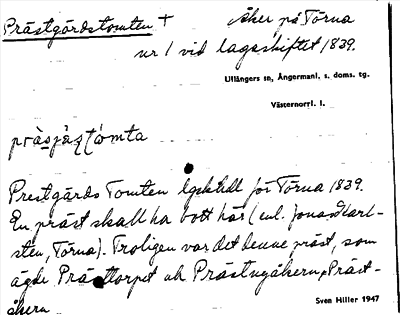 Prästgårdstomten +
åker på Törna
nr 1 vid lagaskiftet 1839.
Ullångers sn, Ångermanl. s. doms. tg.
Västernorrl. l.
Prestgårds Tomten lgskhdl för Törna 1839.
En präst skall ha bott här (enl. Jonas Karl-
sten, Törna). Troligen var det denne präst, som
ägde Prästtorpet och Prästnyåkern, Präst-
åkern
Sven Hiller 1947